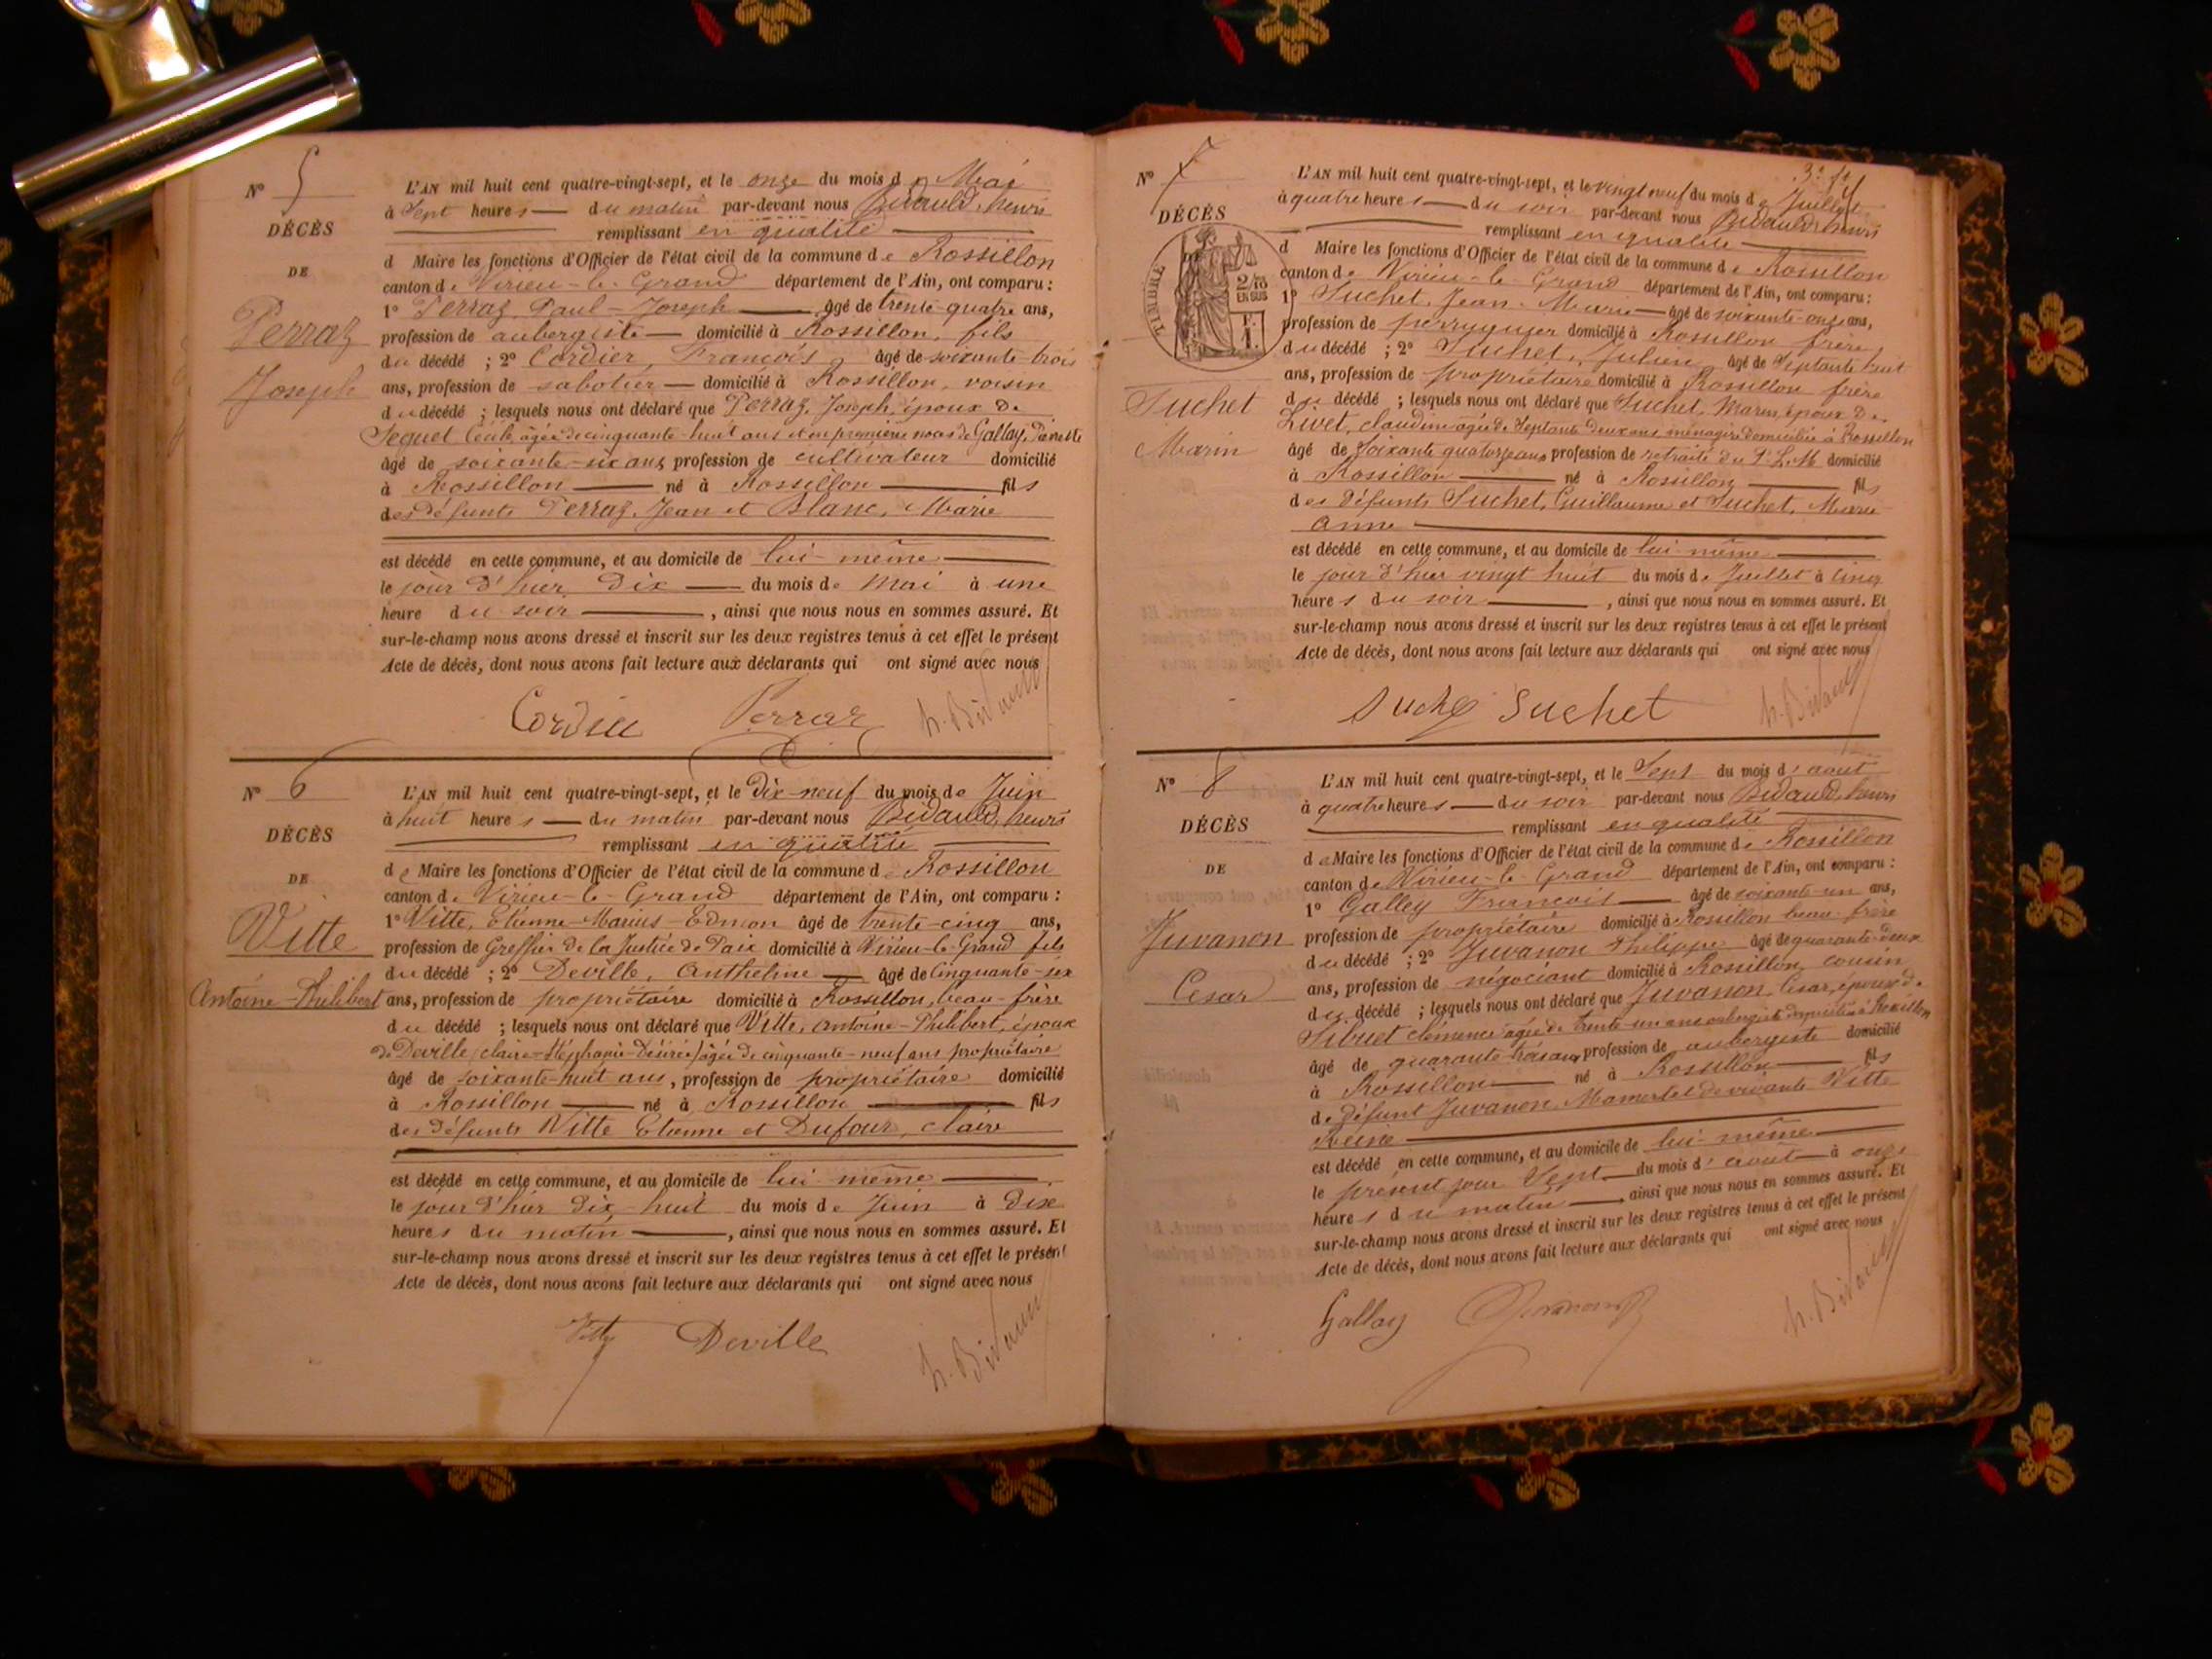 Nº 5
DÉCÈS
DE
Perraz
Joseph
L'AN mil huit cent quatre-vingt-sept, et le onze du mois de Mai
à Sept heures du matin par-devant nous Bidauld, henri
remplissant en qualité
d Maire les fonctions d'Officier de l'état civil de la commune de Rossillon
canton de Virieu-le-Grand département de l'Ain, ont comparu :
1º Perraz Paul-Joseph âgé de trente-quatre ans,
profession de aubergiste domicilié à Rossillon, fils
du décédé ; 2º Cordier, François âgé de soixante trois
ans, profession de sabotier domicilié à Rossillon, voisin
du décédé ; lesquels nous ont déclaré que Perraz, Joseph, époux de
Seguet Cécile, âgée de cinquante-huit ans et en première noces de Gallay,
âgé de soixante-six ans profession de cultivateur domicilié
à Rossillon né à Rossillon fils
des défunts Perraz, Jean et Blanc, Marie
est décédé en cette commune, et au domicile de lui-même
le jour d'hier dix du mois de Mai à une
heure du soir, ainsi que nous nous en sommes assuré. Et
sur-le-champ nous avons dressé et inscrit sur les deux registres tenus à cet effet le présent
Acte de décès, dont nous avons fait lecture aux déclarants qui ont signé avec nous
Cordier Perraz h. Bidauld
Nº 6
DÉCÈS
DE
Vitte
Antoine-Philibert
L'AN mil huit cent quatre-vingt-sept, et le Dix-neuf du mois de Juin
à huit heures du matin par-devant nous Bidauld, henri
remplissant en qualité
de Maire les fonctions d'Officier de l'état civil de la commune de Rossillon
canton de Virieu-le-Grand département de l'Ain, ont comparu :
1º Vitte, Etienne-Marius-Edmon âgé de trente-cinq ans,
profession de Greffier de la Justice de Paix domicilié à Virieu-le-Grand fils
du décédé ; 2º Deville, Anthelme âgé de Cinquante-six
ans, profession de propriétaire domicilié à Rossillon, beau-frère
du décédé ; lesquels nous ont déclaré que Vitte, Antoine-Philibert, époux
de Deville, claire-Stéphanie-Désirée, âgée de cinquante-neuf ans propriétaire
âgé de soixante-huit ans, profession de propriétaire domicilié
à Rossillon né à Rossillon fils
des défunts Vitte Etienne et Dufour, claire
est décédé en cette commune, et au domicile de lui-même
le jour d'hier dix-huit du mois de Juin à Dix
heures du matin, ainsi que nous nous en sommes assuré. Et
sur-le-champ nous avons dressé et inscrit sur les deux registres tenus à cet effet le présent
Acte de décès, dont nous avons fait lecture aux déclarants qui ont signé avec nous
Vitte Deville h. Bidauld
Nº 7
DÉCÈS
TIMBRE
2/10
EN SUS
Suchet
Marin
L'AN mil huit cent quatre-vingt-sept, et le vingt neuf du mois de Juillet
à quatre heures du soir par-devant nous Bidauld, henri
remplissant en qualité
d Maire les fonctions d'Officier de l'état civil de la commune de Rossillon
canton de Virieu-le-Grand département de l'Ain, ont comparu :
1º Suchet, Jean-Marie âgé de soixante-onze ans,
profession de perruquier domicilié à Rossillon frère
du décédé ; 2º Suchet, Julien âgé de Septante huit
ans, profession de propriétaire domicilié à Rossillon frère
du décédé ; lesquels nous ont déclaré que Suchet, Marin, époux de
Livet, claudine âgée de Septante deux ans, ménagère domiciliée à Rossillon
âgé de Soixante quatorze ans profession de retraité du P.L.M domicilié
à Rossillon né à Rossillon fils
des défunts Suchet, Guillaume et Suchet, Marie
Anne
est décédé en cette commune, et au domicile de lui-même
le jour d'hier vingt huit du mois de Juillet à Cinq
heures du soir, ainsi que nous nous en sommes assuré. Et
sur-le-champ nous avons dressé et inscrit sur les deux registres tenus à cet effet le présent
Acte de décès, dont nous avons fait lecture aux déclarants qui ont signé avec nous
Suchet Suchet h. Bidauld
Nº 8
DÉCÈS
DE
Juvanon
Cesar
L'AN mil huit cent quatre-vingt-sept, et le Sept du mois d'aout
à quatre heures du soir par-devant nous Bidauld, henri
remplissant en qualité
de Maire les fonctions d'Officier de l'état civil de la commune de Rossillon
canton de Virieu-le-Grand département de l'Ain, ont comparu :
1º Galley François âgé de soixante-un ans,
profession de propriétaire domicilié à Rossillon beau-frère
du décédé ; 2º Juvanon Philippe âgé de quarante-deux
ans, profession de négociant domicilié à Rossillon, cousin
du décédé ; lesquels nous ont déclaré que Juvanon, César, époux de
Sibuet clémence âgée de trente-un ans aubergiste domiciliée à Rossillon
âgé de quarante-trois ans profession de aubergiste domicilié
à Rossillon né à Rossillon fils
de défunt Juvanon, Mamert et de vivante Vitte
Reine
est décédé en cette commune, et au domicile de lui-même
le présent jour Sept du mois d'aout à onze
heures du matin, ainsi que nous nous en sommes assuré. Et
sur-le-champ nous avons dressé et inscrit sur les deux registres tenus à cet effet le présent
Acte de décès, dont nous avons fait lecture aux déclarants qui ont signé avec nous
Gallay Juvanon h. Bidauld